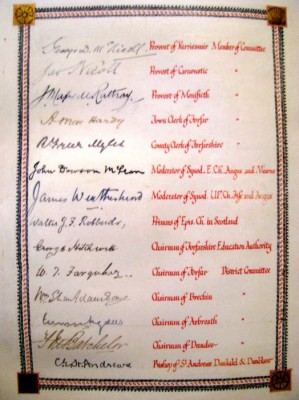 George D. M. Nicoll Provost of Kirriemuir Member of Committee
Provost of Carnoustie "
J Provost of Monifieth "
Hardy Town Clerk of Forfar "
Myles County Clerk of Forfarshire "
John Dawson McLean Moderator of Synod. E. Ch. Angus and Mearns
James Weatherhead Moderator of Synod U.F. Ch. Fife and Angus
Walter J. F. Robberds, Primus of Epis. Ch. in Scotland
George Chairman of Forfarshire Education Authority
W. T. Farquhar.. Chairman of Forfar District Committee
Wm Shaw Adamson Chairman of Brechin "
Chairman of Arbroath "
Batchelor Chairman of Dundee "
Andrews Bishop of St Andrews Dunkeld & Dunblane